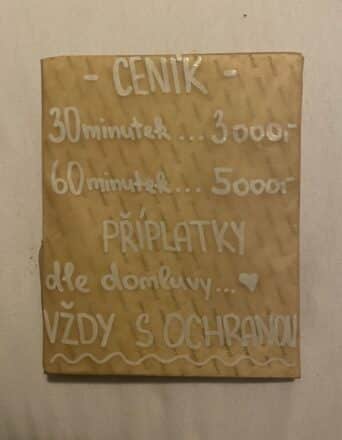 - CENÍK -
30 minutek... 3000,-
60 minutek... 5000,-
PŘÍPLATKY
dle domluvy...♥
VŽDY S OCHRANOU